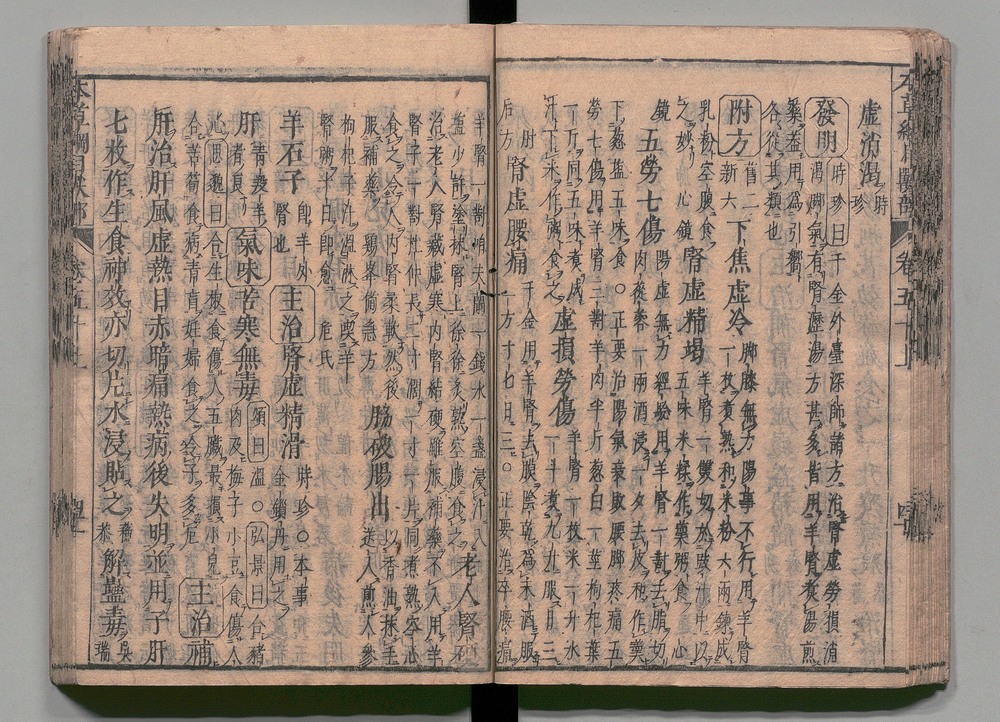 虛消渴 時珍
發明 時珍曰千金外臺深師諸方治腎虛勞損消
渴脚氣有腎瀝湯方甚多皆用羊腎煮湯煎
藥葢用爲引嚮
各從其類也
附方 舊二新六 下焦虛冷 脚膝無力陽事不行用羊腎
一枚煮熟和米粉六兩鍊成
乳粉空腹食
之妙 心鏡 腎虛精竭 羊腎一雙切於豉汁中以
五味米糅作羹粥食 心
鏡 五勞七傷 陽虛無力經驗用羊腎一對去脂切
肉蓯蓉一兩酒浸一夕去皮和作羹
下葱鹽五味食○正要治陽氣衰敗腰脚疼痛五
勞七傷用羊腎三對羊肉半斤葱白一莖枸杞葉
一斤同五味煮成
汁下米作粥食之 虛損勞傷 羊腎一枚米一升水
一斗煮九升服日三
肘後方 腎虛腰痛 千金用羊腎去膜陰乾爲末酒服
二方寸匕日三○正要治卒腰痛
羊腎一對咱夫蘭一錢水一盞浸汁入
鹽少許塗抹腎上徐徐炙熟空腹食之 老人腎硬
治老人腎藏虛寒內腎結硬雖服補藥不入用羊
腎子一對杜仲長二寸闊一寸一片同煮熟空心
食之令人內腎柔軟然後
服補藥 鷄峯備急方 脇破腸出 以香油抹手
送入煎人參
枸杞子汁溫淋之喫羊
腎粥十日即愈 危氏
羊石子 即羊外腎也 主治腎虛精滑 時珍○本事
金鎖丹用之
肝 青羖羊者良 氣味苦寒無毒 頌曰溫○弘景曰合豬
肉及梅子小豆食傷人
心 思邈曰合生椒食傷人五臟最損小兒
合苦筍食病青盲妊婦食之令子多厄 主治補
肝治肝風虛熱目赤暗痛熱病後失明並用子肝
七枚作生食神效亦切片水浸貼之 蘇恭 解蠱毒 吳瑞